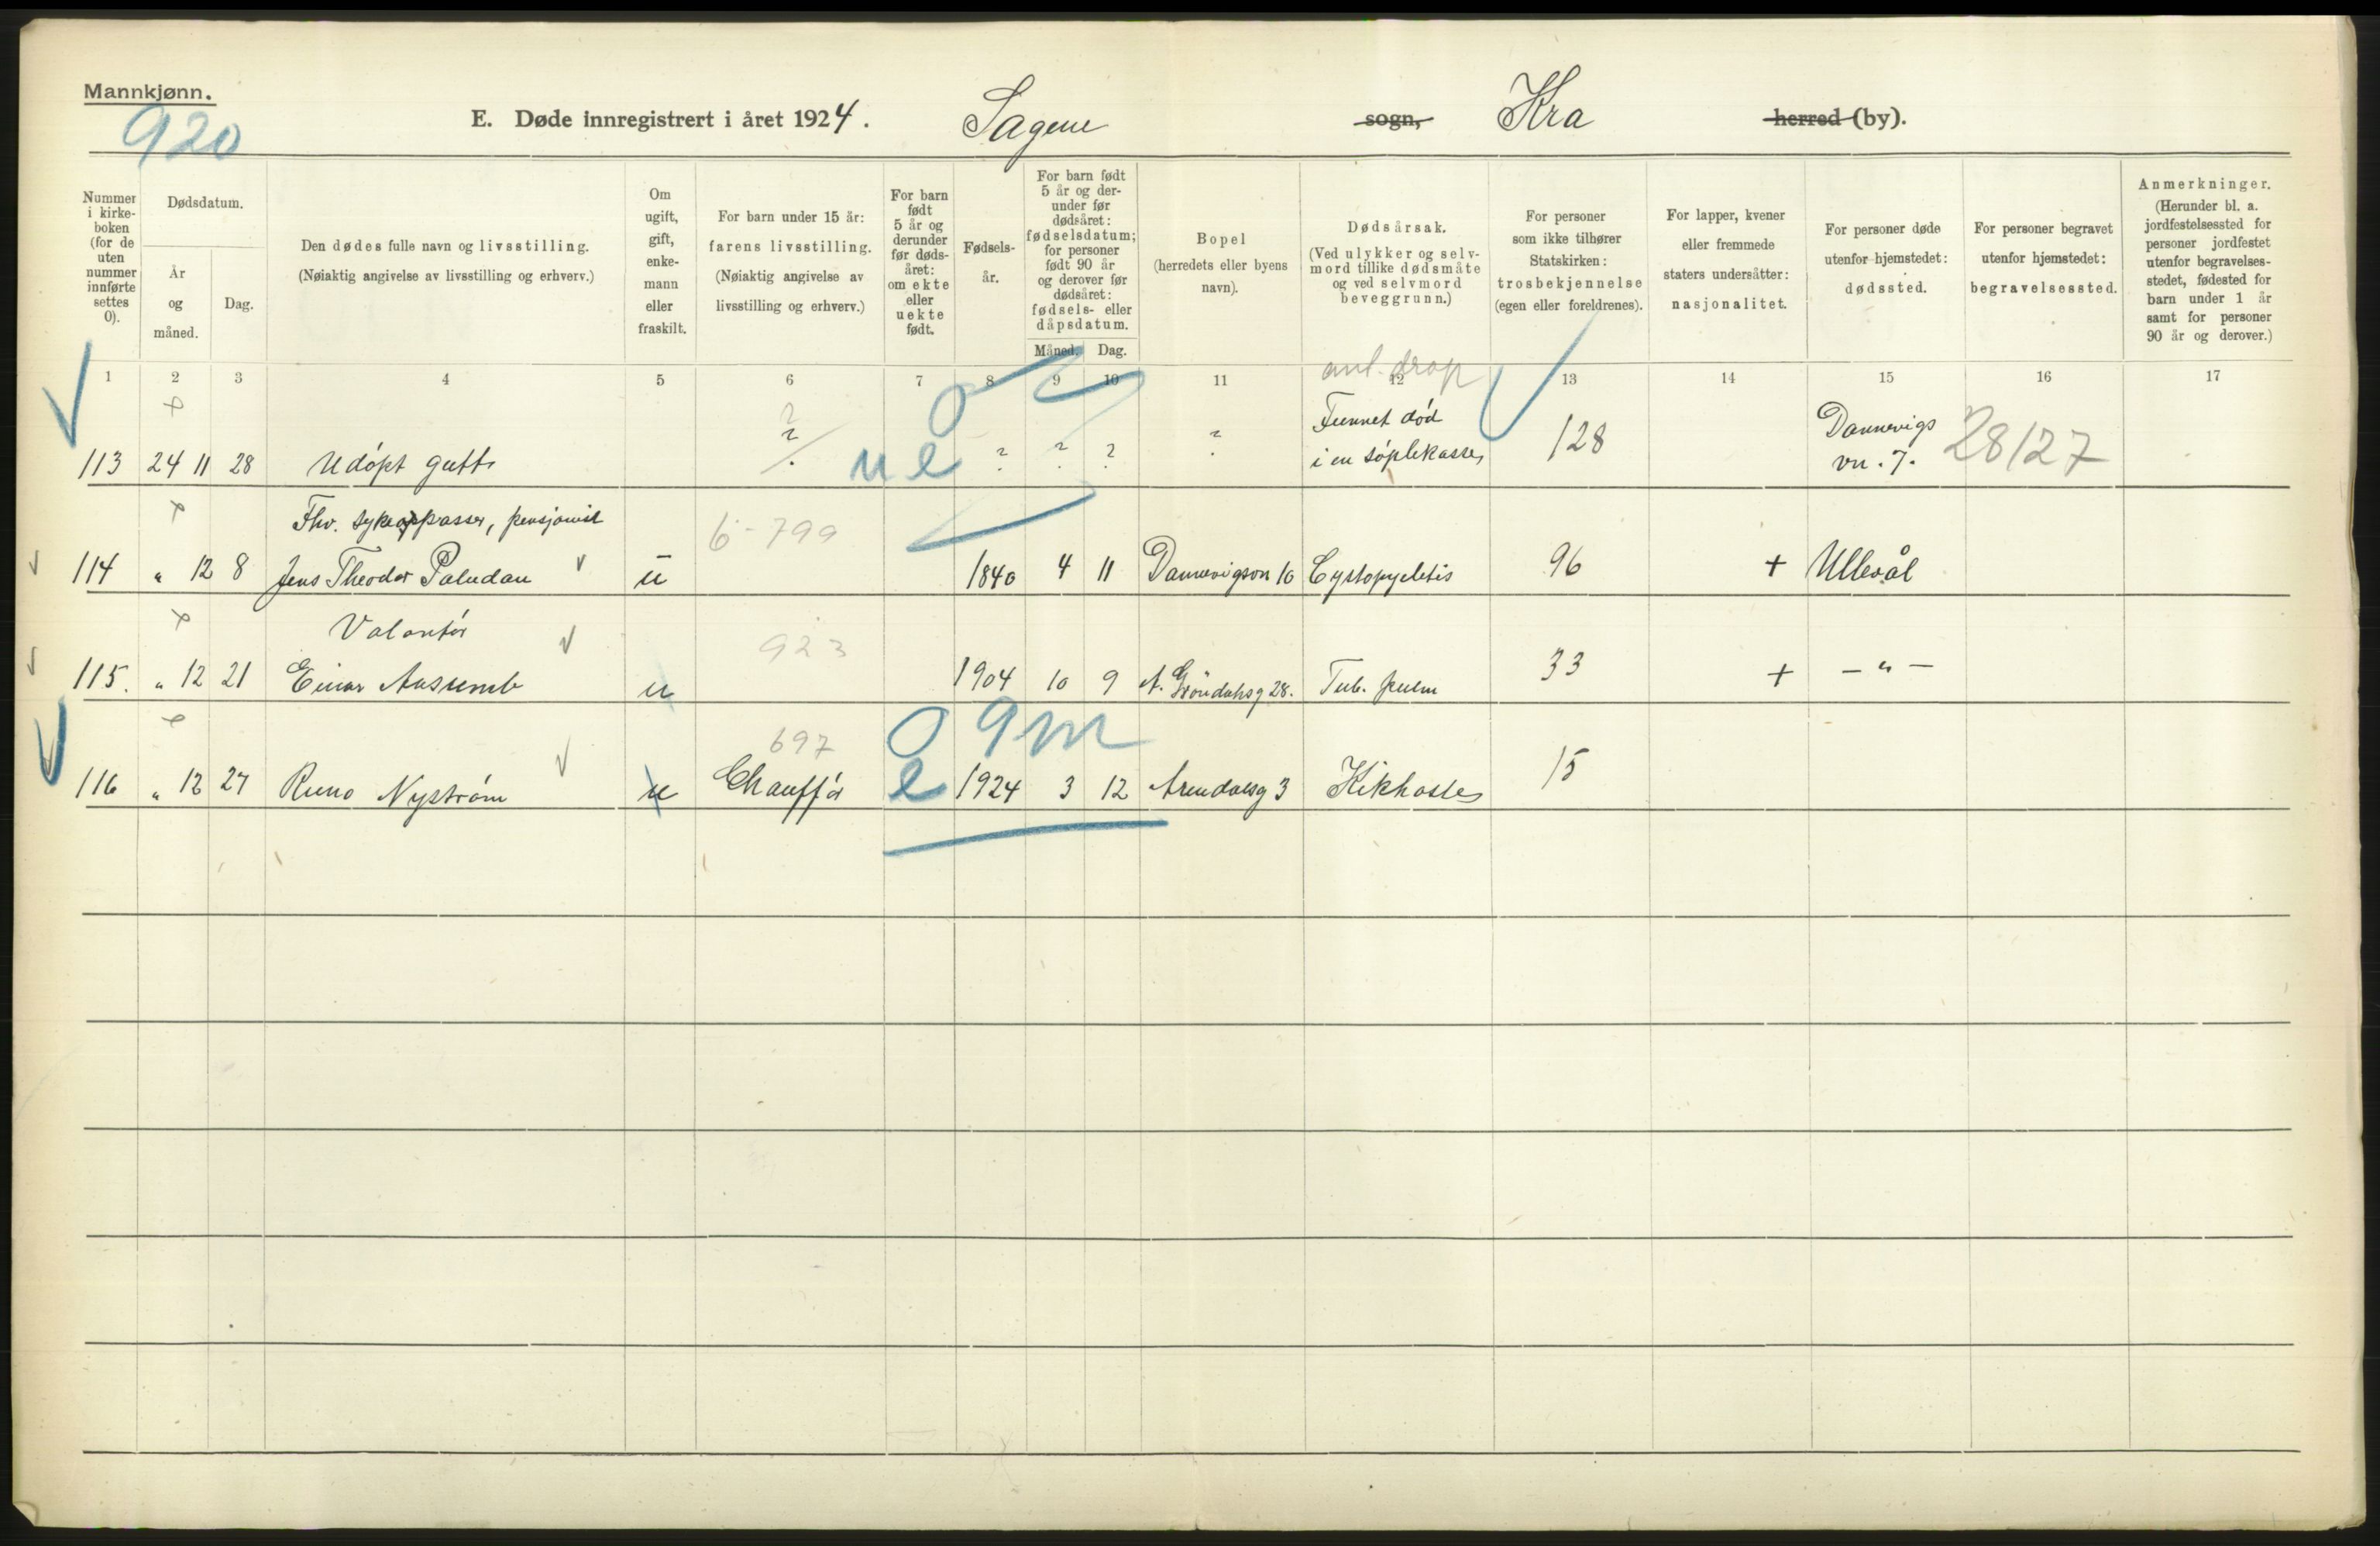 Mannkjønn.
920
E. Døde innregistrert i året 1924. Sagene sogn, Kra herred (by).
Nummer i kirkeboken (for de uten nummer innførte settes 0).
Dødsdatum.
År og måned.
Dag.
Den dødes fulle navn og livsstilling.
(Nøiaktig angivelse av livsstilling og erhverv.)
Om ugift, gift, enkemann eller fraskilt.
For barn under 15 år:
farens livsstilling.
(Nøiaktig angivelse av livsstilling og erhverv.)
For barn født 5 år og derunder før dødsåret: om ekte eller uekte født.
Fødselsår.
For barn født 5 år og derunder før dødsåret: fødselsdatum; for personer født 90 år og derover før dødsåret: fødsels- eller dåpsdatum.
Måned. Dag.
Bopel
(herredets eller byens navn).
Dødsårsak.
(Ved ulykker og selvmord tillike dødsmåte og ved selvmord beveggrunn.)
For personer som ikke tilhører Statskirken: trosbekjennelse (egen eller foreldrenes).
For lapper, kvener eller fremmede staters undersåtter: nasjonalitet.
For personer døde utenfor hjemstedet: dødssted.
For personer begravet utenfor hjemstedet: begravelsessted.
Anmerkninger.
(Herunder bl. a. jordfestelsessted for personer jordfestet utenfor begravelsesstedet, fødested for barn under 1 år samt for personer 90 år og derover.)
1 2 3 4 5 6 7 8 9 10 11 12 13 14 15 16 17
anl. drap
? 0 Funnet død Dannevigs
113 24 11 28 Udøpt gutt ? ue ? ? ? ? i en søplekasse, 128 vn. 7. 28/27
Fhv. sykepasser, pensjonist 6-799
114 " 12 8 Jens Theodor Paludan u 1840 4 11 Dannevigsvn 10 Cystopyelitis 96 + Ullevål
Volontør 923
115. " 12 21 Einar u 1904 10 9 A. Gröndahsg 28. Tub. pulm 33 + – " –
697 0 9 m
116 " 12 27 Runo Nyström u Chauffør e 1924 3 12 Arendalsg 3 Kikhoste 15